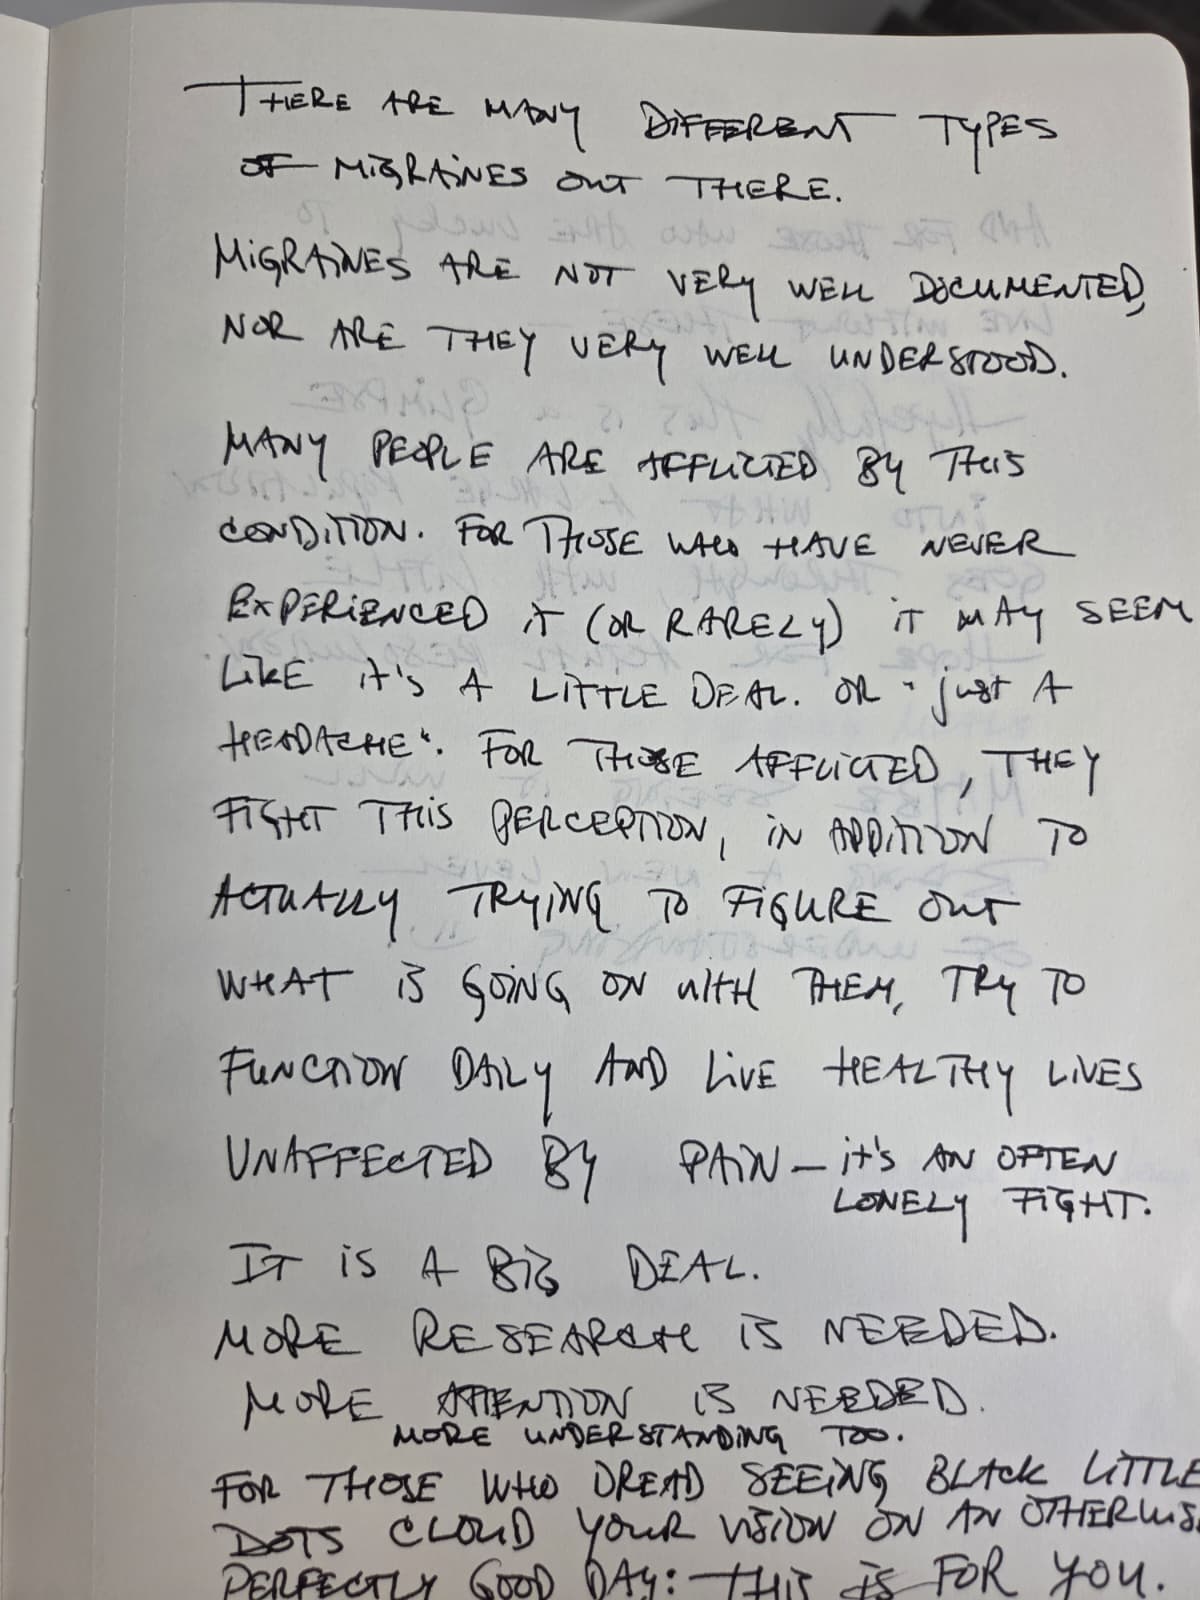 THERE ARE MANY DIFFERENT TYPES
OF MIGRAINES OUT THERE.
MIGRAINES ARE NOT VERY WELL DOCUMENTED,
NOR ARE THEY VERY WELL UNDERSTOOD.
MANY PEOPLE ARE AFFLICTED BY THIS
CONDITION. FOR THOSE WHO HAVE NEVER
EXPERIENCED it (OR RARELY) iT MAY SEEM
LIKE it's A LITTLE DEAL. OR "just A
HEADACHE". FOR THOSE AFFLICTED, THEY
FIGHT THIS PERCEPTION, IN ADDITION TO
ACTUALLY TRYING TO FIGURE OUT
WHAT IS GOING ON WITH THEM, TRY TO
FUNCTION DAILY AND LIVE HEALTHY LIVES
UNAFFECTED BY PAIN – it's AN OFTEN
LONELY FIGHT.
IT IS A BIG DEAL.
MORE RESEARCH IS NEEDED.
MORE ATTENTION IS NEEDED.
MORE UNDERSTANDING TOO.
FOR THOSE WHO DREAD SEEING BLACK LITTLE
DOTS CLOUD YOUR VISION ON AN OTHERWIS
PERFECTLY GOOD DAY: THIS IS FOR YOU.